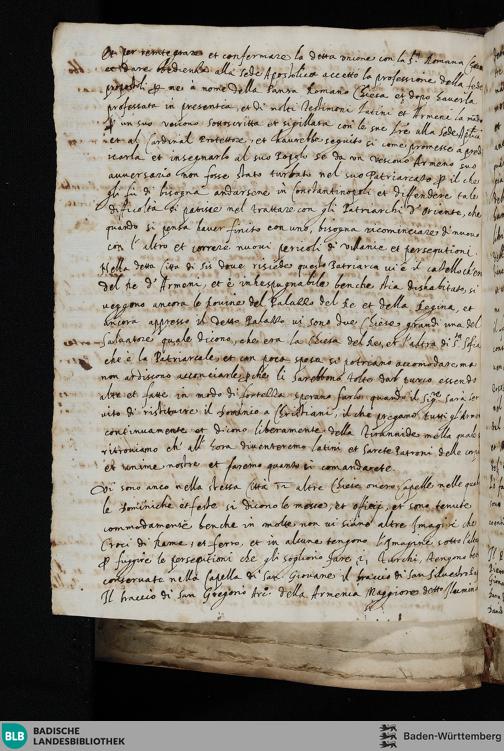 et per reintegrare et confermare la detta unione con la S.ta Romana
et dare obedienza alla sede Apostolica accettò la professione della fede
à nome della Santa Romana Chiesa et dopo haverla
professata in presentia et di molti Testimoni Latini et Armeni la mandò
un suo vescovo sottoscritta et sigillata con le sue lre alla Sede Aplica
et al Cardinal Protettore, et havrebbe seguito si come promesse a predi
scarla et insegnarla al suo Popolo se da un vescovo Armeno suo
avversario non fosse stato turbato nel suo Patriarcato, il che
gli fù di bisogna andarsene in Constantinopoli et diffendere tale
difficoltà si patisce nel trattare con gli Patriarchi d'Oriente, che
quando si pensa haver finito con uno, bisogna recominciare di nuovo
con l'altro et correre nuovi pericoli di villanie et persegutioni
Nella detta Città di Sis dove risiede questo Patriarca vi è il castello
del Re d'Armenia, et è inhespugnabile benche stia dishabitato, si
veggono ancora le rovine del Palazzo del Re et della Regina, et
ancora appresso il detto Palazzo vi sono due Chiese grandi una del
Salvatore quale dicono, che era la Chiesa del Re, et l'altra di S.ta Sofia
che è la Patriarcale, et con poca spesa si potriano accomodare ma
non ardiscono acconciarle, che li sarebbono tolte dal turco essendo
alte et fatte in modo di fortezza sperano farlo quando il Sig.re sarà ser
vito di ristituire il dominio a Christiani, il che pregano tutti gl'Armeni
continuamente et dicono liberamente della Tirannide nella quale si
ritroviamo ch'all'hora diventeremo latini et sarete Patroni delle
et anime nostre et faremo quanto si comandarete
Vi sono anco nella stessa Città 12 altre Chiese overo Capelle nelle quali
le Dominiche et feste si dicono le messe, et offitij, et sono tenute
commodamente benche in molte non vi siano altre Imagini che
Croci di Rame, et ferro, et in alcune tengono l'Imagine sotto
fuggire le persegutioni che gli sogliono fare i Turchi, tengono ben
conservato nella Capella di San Giovane il braccio di San Silvestro
Il braccio di San Gregorio della Armenia Maggiore detto
BLB
BADISCHE
LANDESBIBLIOTHEK
Baden-Württemberg